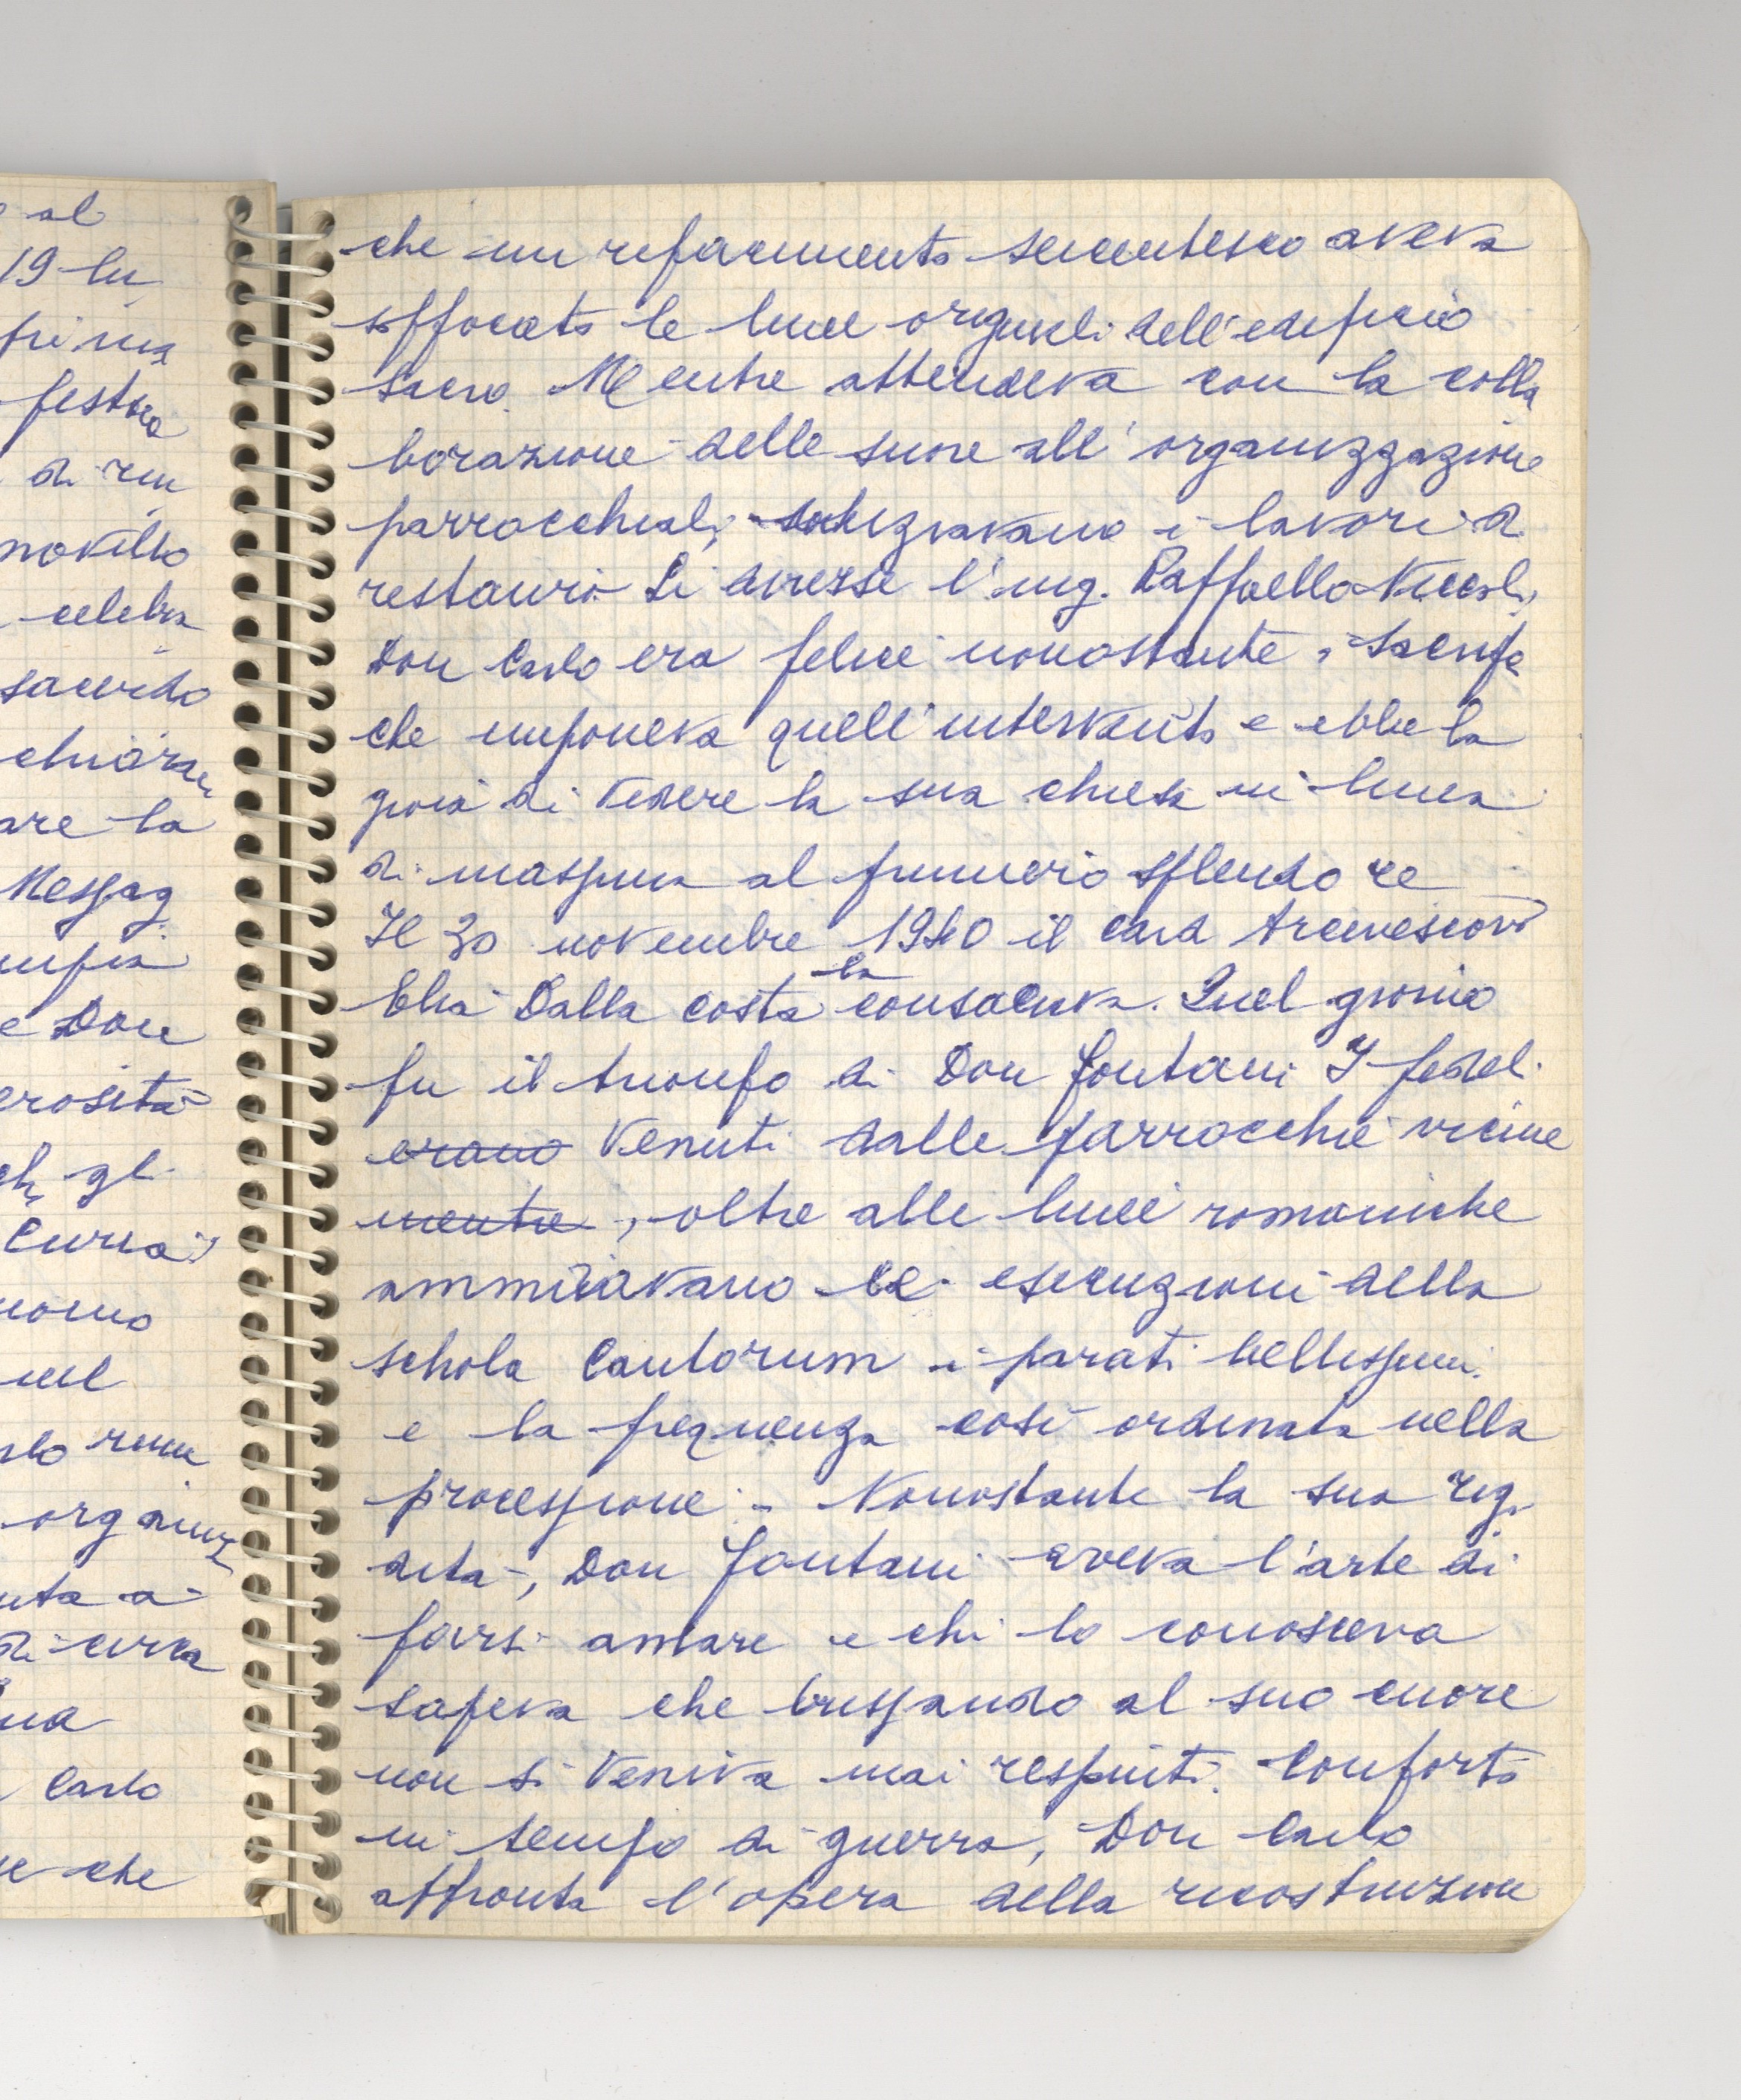 al
19 lu
prima
festiva
di rin
novello
celebra
sacerdo
chiaran
are la
Messag
e Don
erosità
gli
Curia
uomo
nel
organizz
a
di circa
Carlo
e che
che un rifacimento seicentesco aveva
soffocato le linee originali dell'edificio
sacro. Mentre attendeva con la colla
borazione delle suore all'organizzazione
parrocchiale, iniziavano i lavori di
restauro Li diresse l'ing. Raffaello Niccoli,
Don Carlo era felice nonostante i sacrifici
che imponeva quell'intervento e ebbe la
gioia di vedere la sua chiesa in linea
di massima al primiero splendore
Il 30 novembre 1940 il Card Arcivescovo
Elia Dalla Costa la consacrava. Quel giorno
fu il trionfo di Don Fontani I fedeli
erano venuti dalle parrocchie vicine
mentre, oltre alle linee romaniche
ammiravano le esecuzioni della
schola Cantorum i parati bellissimi
e la frequenza così ordinata nella
processione - Nonostante la sua rigi
dità, Don Fontani aveva l'arte di
farsi amare e chi lo conosceva
sapeva che bussando al suo cuore
non si veniva mai respinti. Conforto
in tempo di guerra, Don Carlo
affronta l'opera della ricostruzione